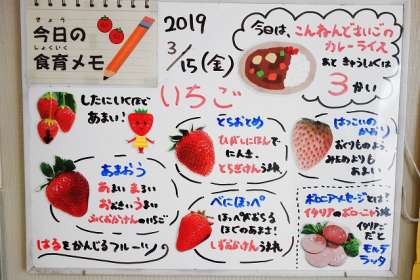 きょう
今日の
しょくいく
食育メモ
2019
3/15(金)
いちご
今日は、こんねんどさいごの
カレーライス
あと きゅうしょくは
3かい
したにいくほど
あまい!
とちおとめ
ひがしにほんで
にんき。
とちぎけんうまれ
はつこいのかおり
おくりものよう。
みためよりも
あまい
あまおう
あかい まるい
おおきい うまい
ふくおかけんのいちご
べにほっぺ
ほっぺがおちる
ほどのおあじ!
しずおかけんうまれ
はるをかんじるフルーツ♪
ボロニアソーセージとは?
イタリアのボローニャうまれ
イタリアご
だと
モルタ
デッラ